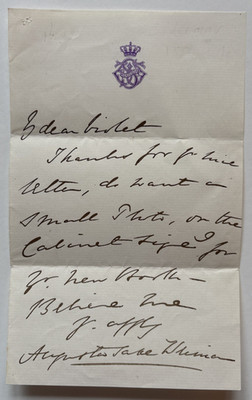 My dear Violet
Thanks for yr nice
letter, do want a
Small Photo, or the
Cabinet Size? for
yr new Book –
Believe me
yr affly
Augusta Saxe Weimar